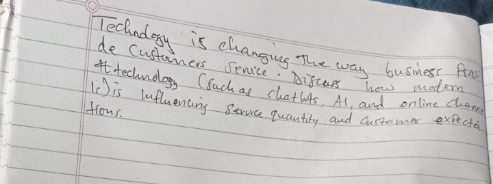 Technology is changing the way business Provi
de Customers Service. Discuss how modern
technology (such as chatbots, AI, and online channe
ls) is influencing service quantity and customer expecta
tions.